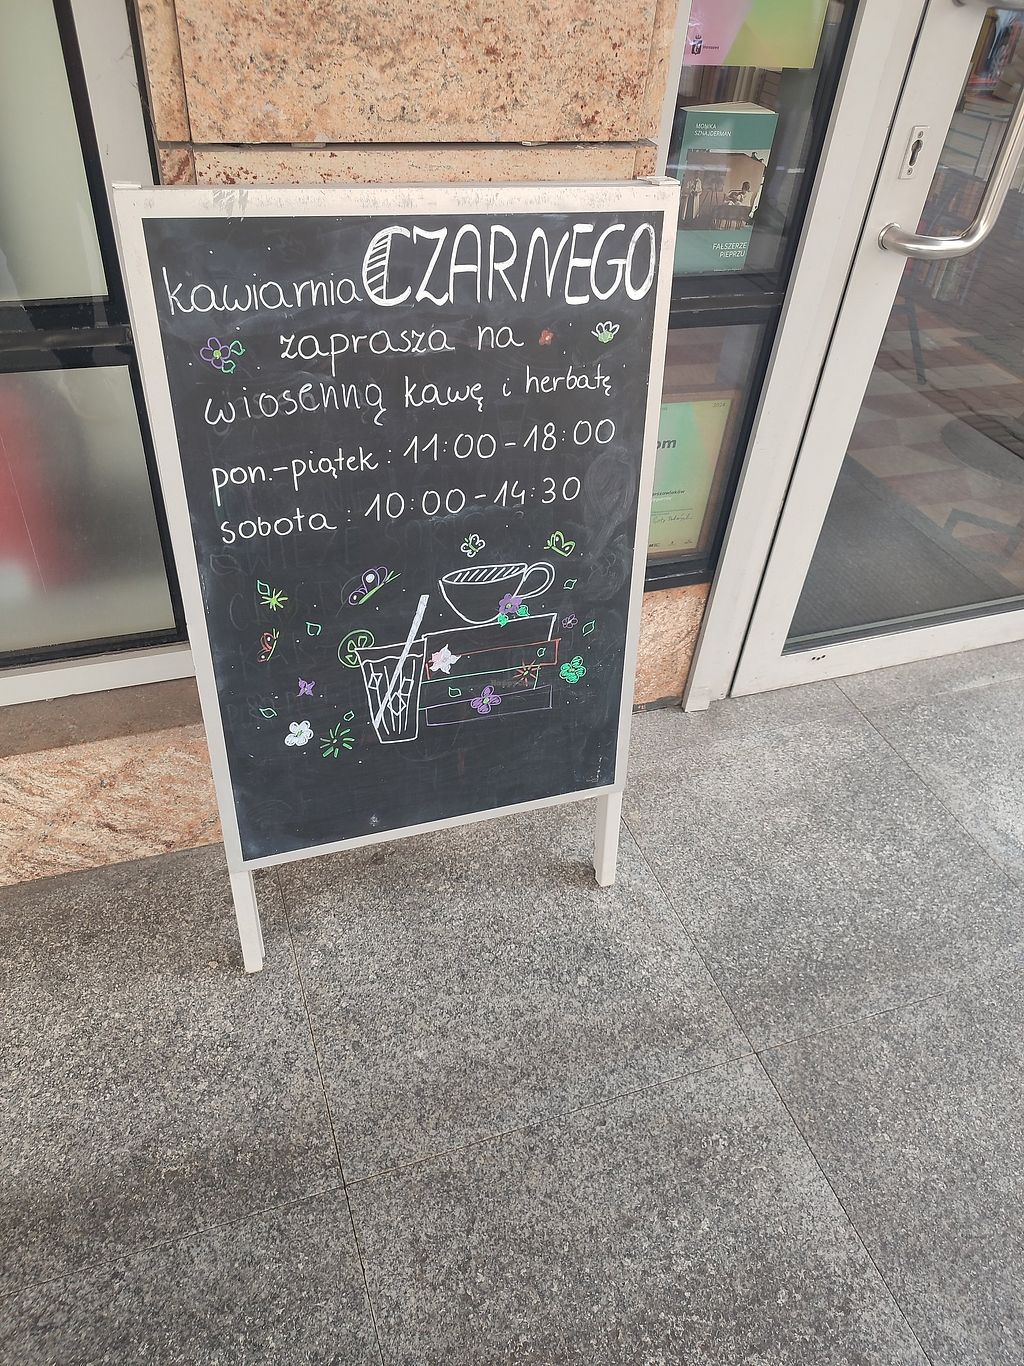 kawiarnia CZARNEGO
zaprasza na
wiosenną kawę i herbatę
pon.-piątek: 11:00-18:00
sobota: 10:00-14:30
MONIKA
SZNAJDERMAN
FAŁSZERZE
PIEPRZU